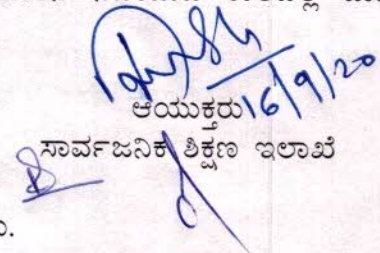 16/9/20
ಆಯುಕ್ತರು
ಸಾರ್ವಜನಿಕ ಶಿಕ್ಷಣ ಇಲಾಖೆ